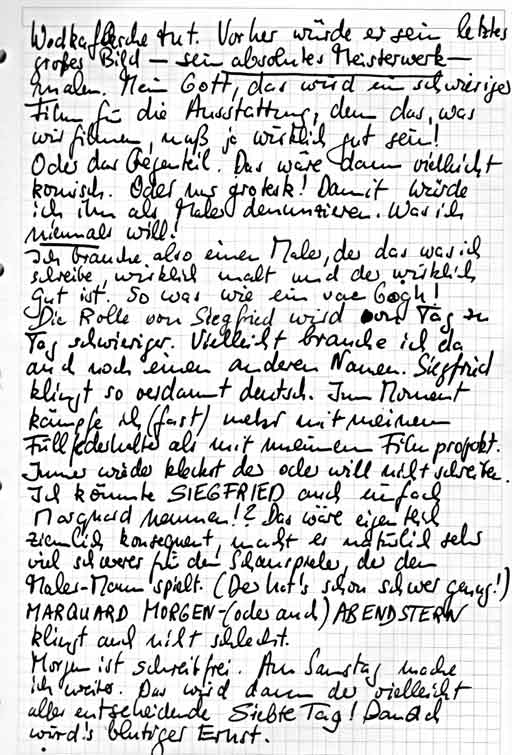 Wodkaflasche tut. Vorher würde er sein letztes
großes Bild – sein absolutes Meisterwerk –
malen. Mein Gott, das wird ein schwieriger
Film für die Ausstattung, denn das, was
wir filmen, muß ja wirklich gut sein!
Oder das Gegenteil. Das wäre dann vielleicht
komisch. Oder nur grotesk! Damit würde
ich ihn als Maler denunzieren. Was ich
niemals will!
Ich brauche also einen Maler, der das was ich
schreibe, wirklich malt und der wirklich
gut ist. So was wie ein van Gogh!
Die Rolle von Siegfried wird von Tag zu
Tag schwieriger. Vielleicht brauche ich da
auch noch einen anderen Namen. Siegfried
klingt so verdammt deutsch. Im Moment
kämpfe ich (fast) mehr mit meinem
Füllfederhalter als mit meinem Filmprojekt.
Immer wieder kleckst der oder will nicht schreiben.
Ich könnte SIEGFRIED auch einfach
Marquard nennen!? Das wäre eigentlich
ziemlich konsequent, macht es natürlich sehr
viel schwerer für den Schauspieler, der den
Maler-Mann spielt. (Der hat's schon schwer genug!)
MARQUARD MORGEN-(oder auch) ABENDSTERN
klingt auch nicht schlecht.
Morgen ist schreibfrei. Am Samstag mache
ich weiter. Das wird dann der vielleicht
alles entscheidende Siebte Tag! Danach
wird's blutiger Ernst.